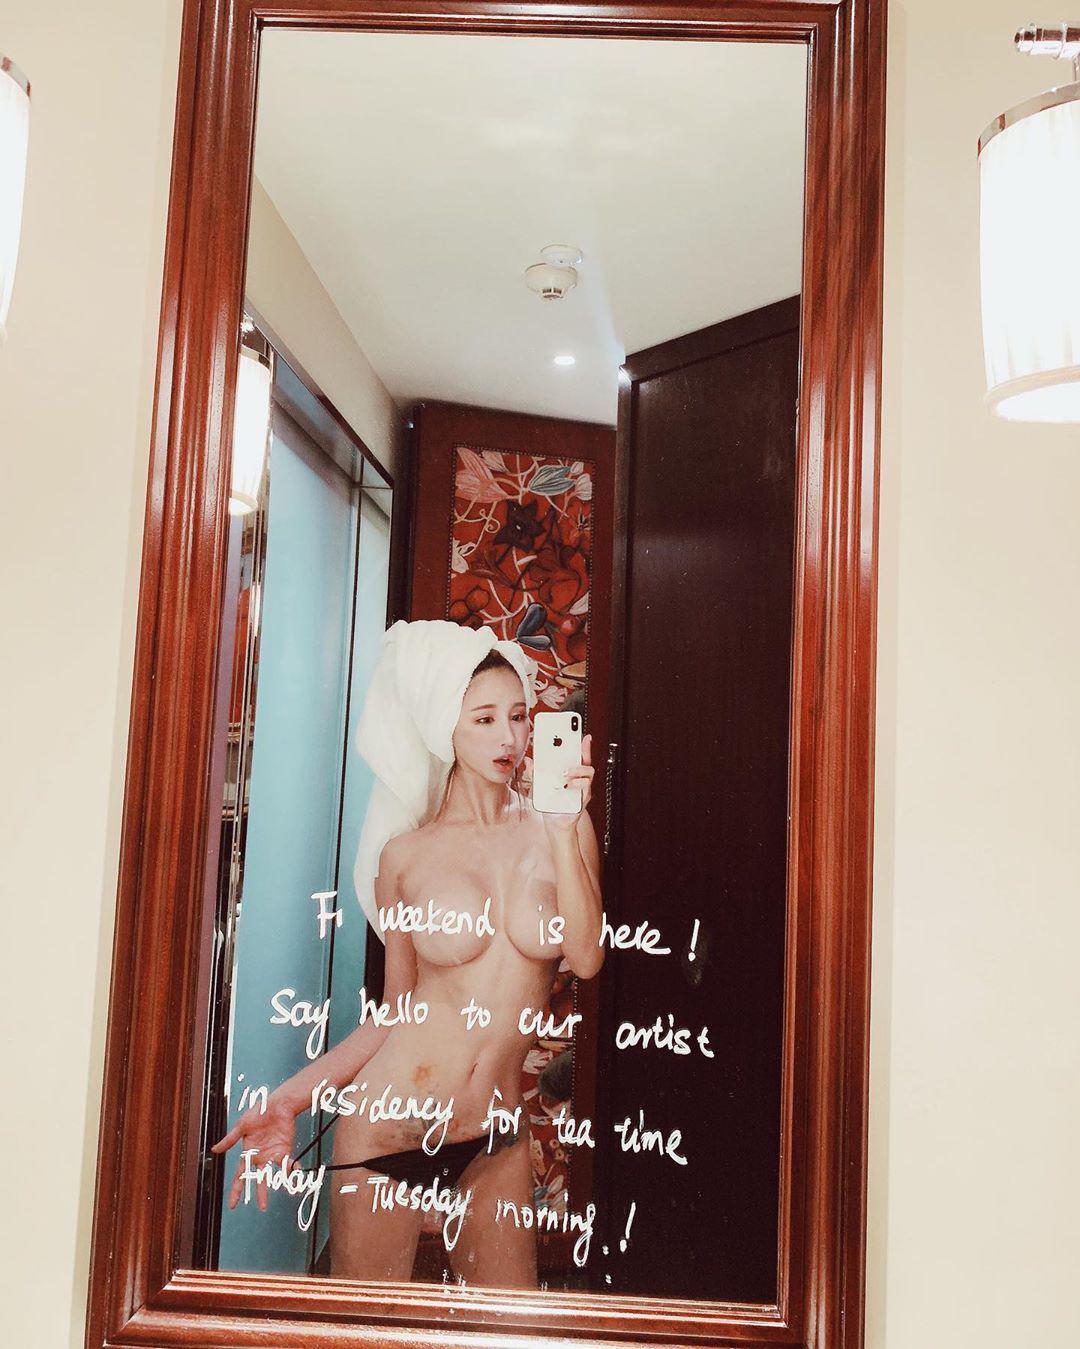 Fr weekend is here !
Say hello to our artist
in residency for tea time
Friday - Tuesday morning !